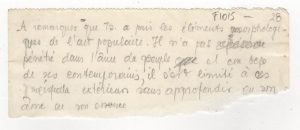 F1015 — 28
A remarquer que Tz. a pris les éléments morphologi-
ques de l'art populaire. Il n'a pas
pénétré dans l'âme du peuple et en
de ses contemporains, il s'est limité à ces
extérieurs sans approfondir ni son
âme ni son